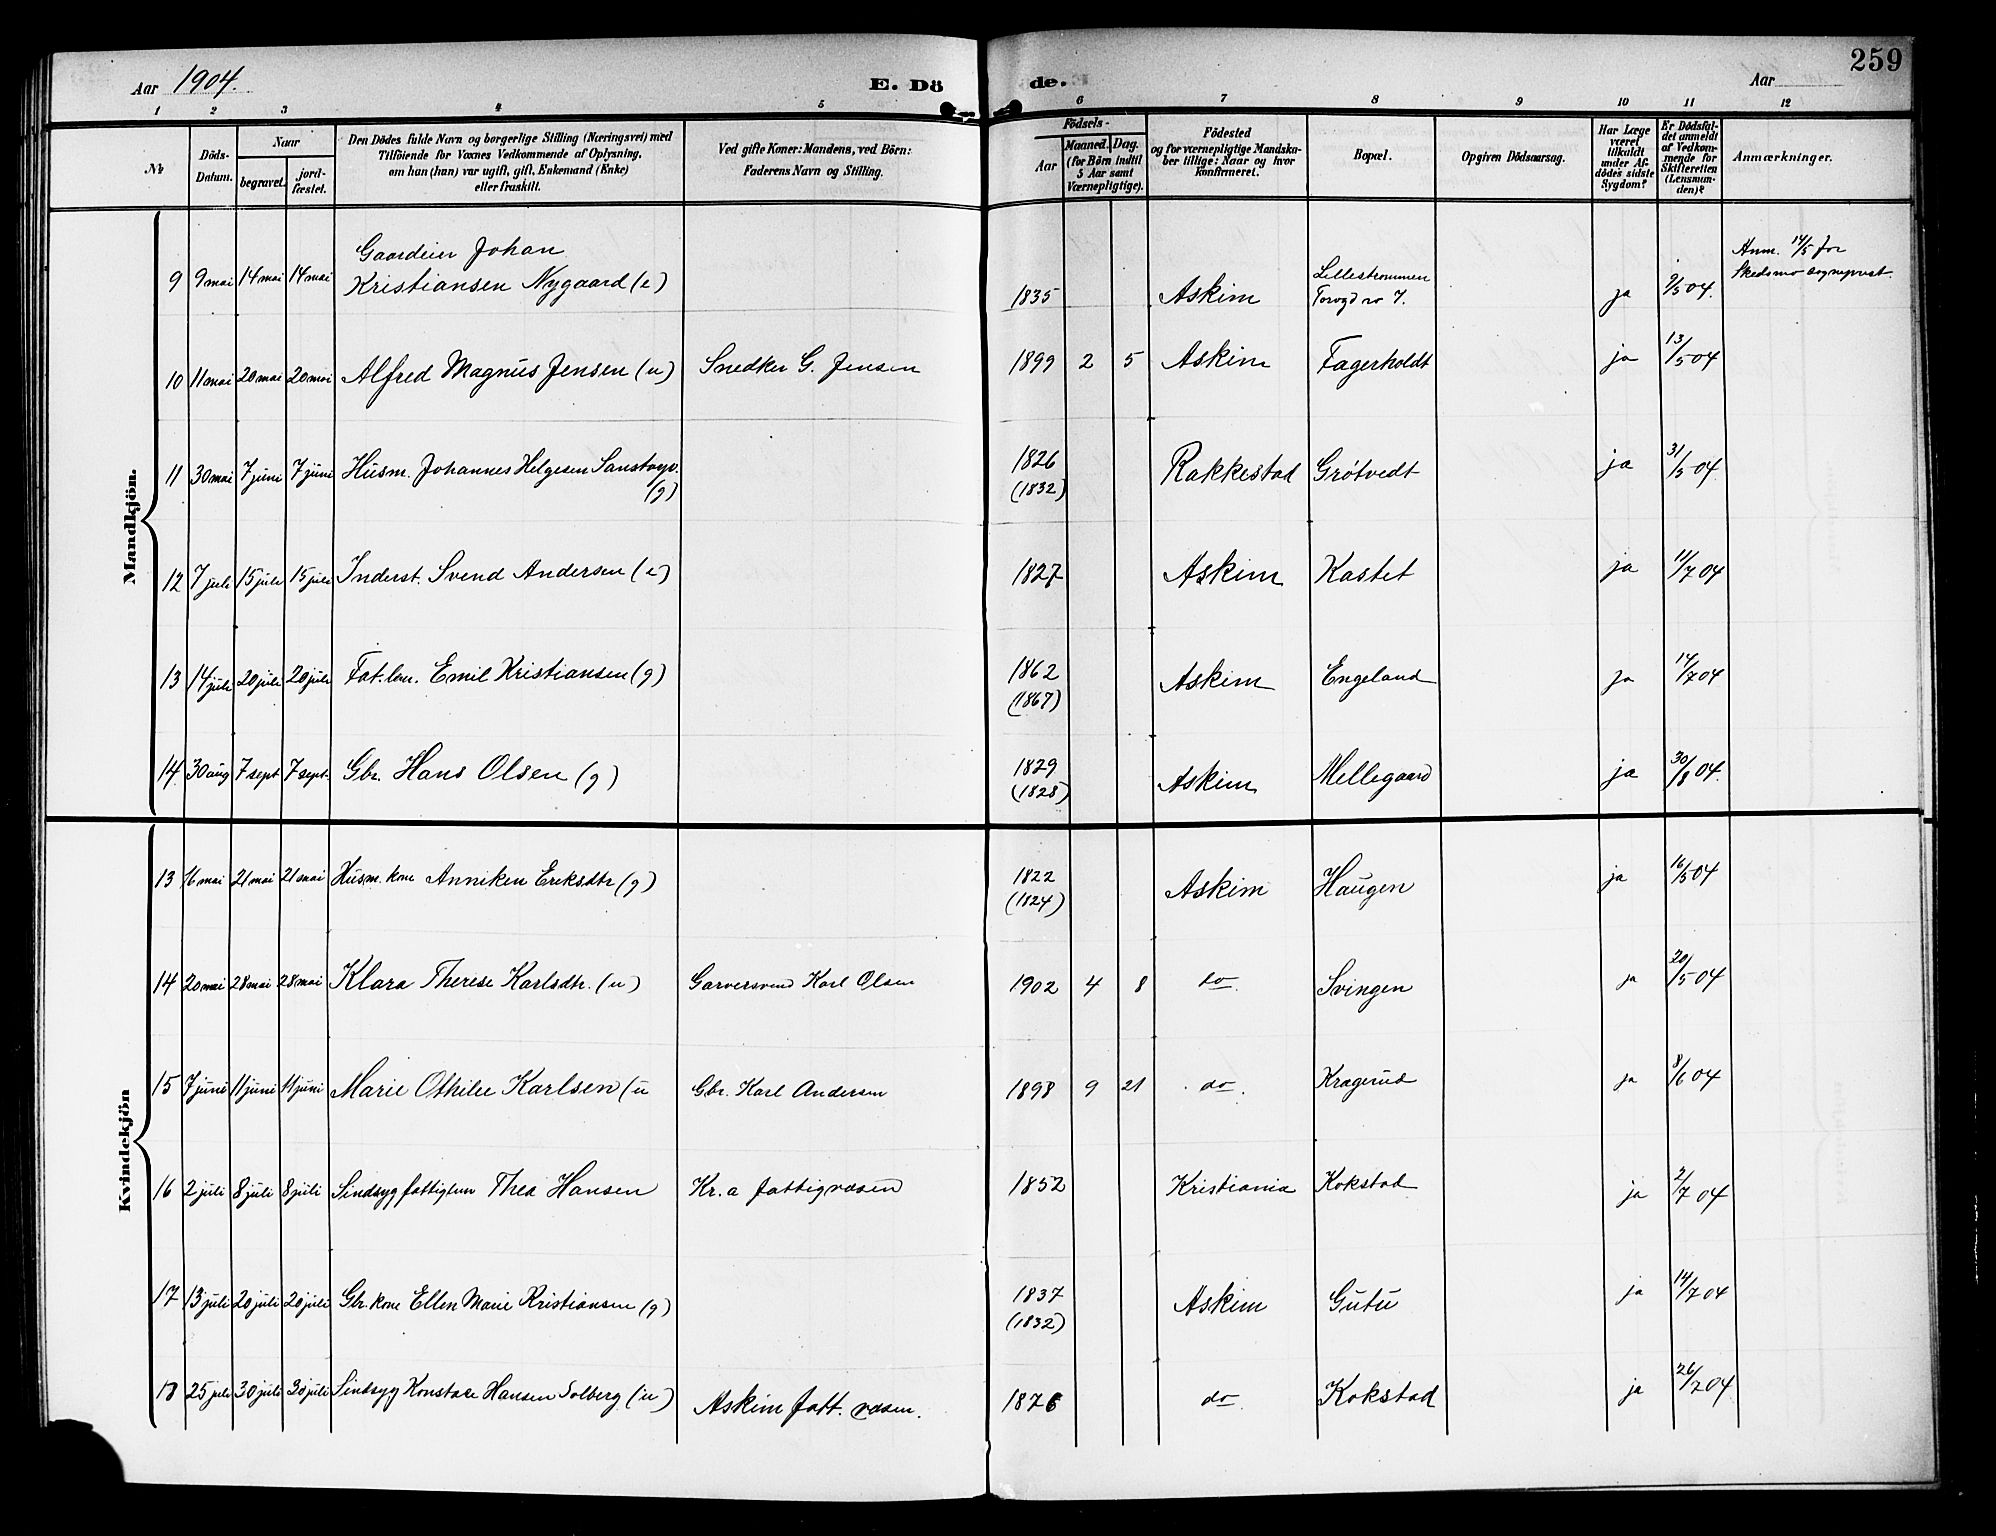 259
Aar 1904.
E. Dö
de.
Aar
1 2 3 4 5 6 7 8 9 10 11 12
№
Döds-
Datum.
Naar
begravet.
jord-
fæstet.
Den Dödes fulde Navn og borgerlige Stilling (Næringsvei) med
Tilföiende for Voxnes Vedkommende af Oplysning,
om han (hun) var ugift, gift, Enkemand (Enke)
eller fraskilt.
Ved gifte Koner: Mandens, ved Börn:
Faderens Navn og Stilling.
Födsels-
Aar
Maaned. Dag.
(for Börn indtil
5 Aar samt
Værnepligtige).
Födested
og for værnepligtige Mandska-
ber tillige: Naar og hvor
konfirmeret.
Bopæl.
Opgiven Dödsaarsag.
Har Læge
været
tilkaldt
under Af-
dödes sidste
Sygdom?
Er Dödsfal-
det anmeldt
af Vedkom-
mende for
Skifteretten
(Lensman-
den)?
Anmærkninger.
Mandkjön.
9 9 mai 14 mai 14 mai Gaardeier Johan
Kristiansen Nygaard (e) 1835 Askim Lillestrommen
Torvgd no 7. ja 9/5 04. Anm. 14/5 for
Skedsmo sogneprest.
10 11 mai 20 mai 20 mai Alfred Magnus Jensen (u) Snedker G. Jensen 1899 2 5 Askim Fagerholdt ja 13/5 04
11 30 mai 7 juni 7 juni Husm. Johannes Helgesen
(g) 1826
(1832) Rakkestad Grötvedt ja 31/5 04
12 7 juli 15 juli 15 juli Inderst. Svend Andersen (e) 1827 Askim Kastet ja 11/7 04
13 14 juli 20 juli 20 juli Fat. lem. Emil Kristiansen (g) 1862
(1867) Askim Engeland ja 14/7 04
14 30 aug 7 sept 7 sept. Gbr. Hans Olsen (g) 1829
(1828) Askim Mellegaard ja 30/8 04.
Kvindekjön
13 16 mai 21 mai 21 mai Husm. kone Anniken Eriksdtr (g) 1822
(1824) Askim Haugen ja 16/5 04
14 20 mai 28 mai 28 mai Klara Therese Karlsdtr. (u) Garversvend Karl Olsen 1902 4 8 do. Svingen ja 20/5 04
15 7 juni 11 juni 11 juni Marie Othilie Karlsen (u Gbr. Karl Andersen 1898 9 21 do. Kragerud ja 8/6 04
16 2 juli 8 juli 8 juli Sindsyg fattiglem Thea Hansen Kr.a fattigvæsen 1852 Kristiania Kokstad ja 2/7 04
17 13 juli 20 juli 20 juli Gbr. kone Ellen Marie Kristiansen (g) 1837
(1832) Askim Gutu ja 14/7 04
18 25 juli 30 juli 30 juli Sindsyg Hansen Solberg (u) Askim fatt. væsen. 1876 do. Kokstad ja 26/7 04